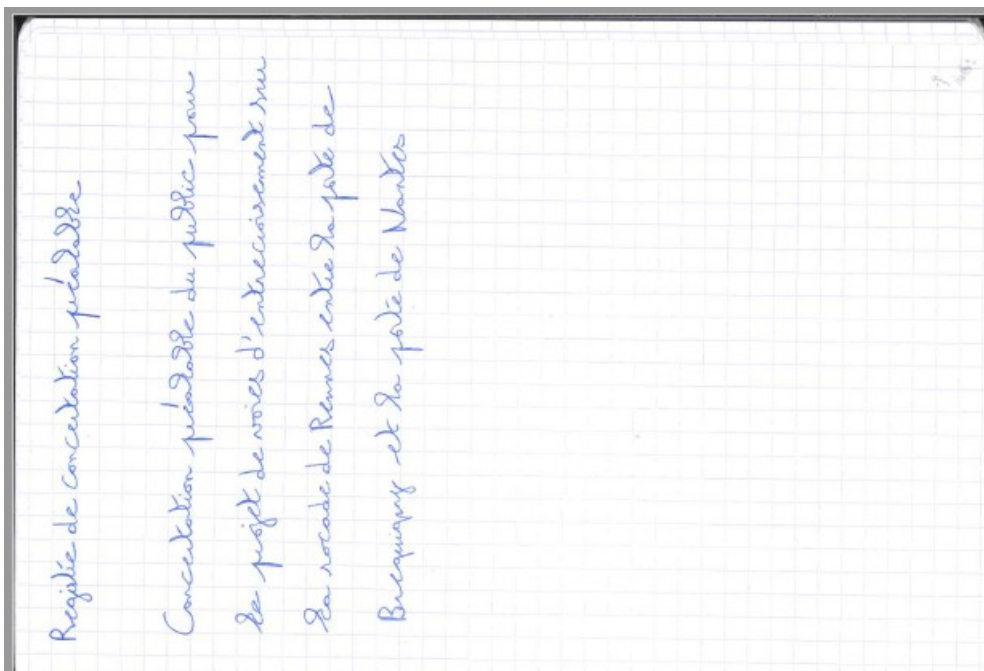 Registre de concertation préalable
Concertation préalable du public pour
le projet de voies d'entrecroisement sur
la rocade de Rennes entre la porte de
Brequigny et la porte de Nantes